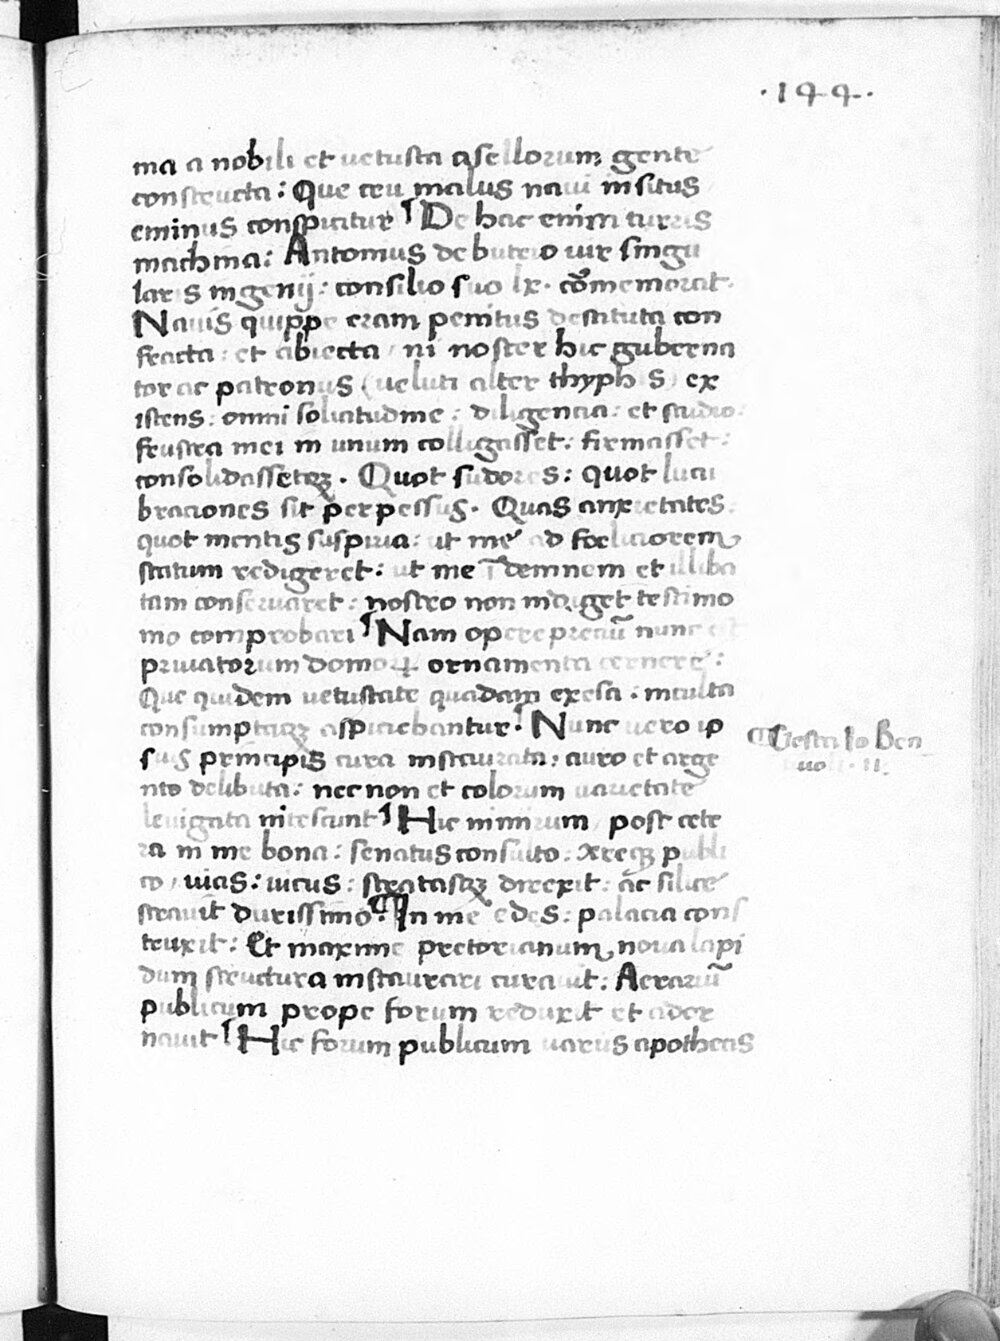 ·144·
ma a nobili et uetusta asellorum gente
constructa: Que ceu malus naui insitus
eminus conspicitur ¶ De hac enim turris
machina: Antonius de butrio uir singu
laris ingenij: consilio suo lx. cōmemorat.
Nauis quippe eram penitus destituta con
fracta: et abiecta, ni noster hic guberna
tor ac patronus (ueluti alter thyphis) ex
istens: omni solicitudine: diligencia: et studio:
frustra mei in unum colligasset: firmasset:
consolidassetqꝫ. Quot sudores: quot lucu
braciones sit perpessus. Quas anxietates:
quot mentis suspiria: ut me ad foeliciorem
statum redigeret: ut me īdemnem et illiba
tam conseruaret: nostro non indiget testimo
nio comprobari ¶ Nam opere preciū nunc est
priuatorum domoꝝ ornamenta cernere:
Que quidem uetustate quadam exesa: inculta
consumptaqꝫ aspiciebantur. ¶ Nunc uero ip
sius principis cura instaurata: auro et arge
nto delibuta: nec non et colorum uarietate
leuigata nitescunt ¶ Hic nimirum, post cete
ra in me bona: senatus consulto: Xreqꝫ publi
co, uias: uicus: stratasqꝫ direxit: ac silice
strauit durissimo. ¶ In me edes: palacia cons
truxit: Et maxime pretorianum, noua lapi
dum structura instaurari curauit: Aerariū
publicum prope forum reduxit et ador
nauit ¶ Hic forum publicum uariis apothecis
¶ Gesta Io Ben
uoli · II.